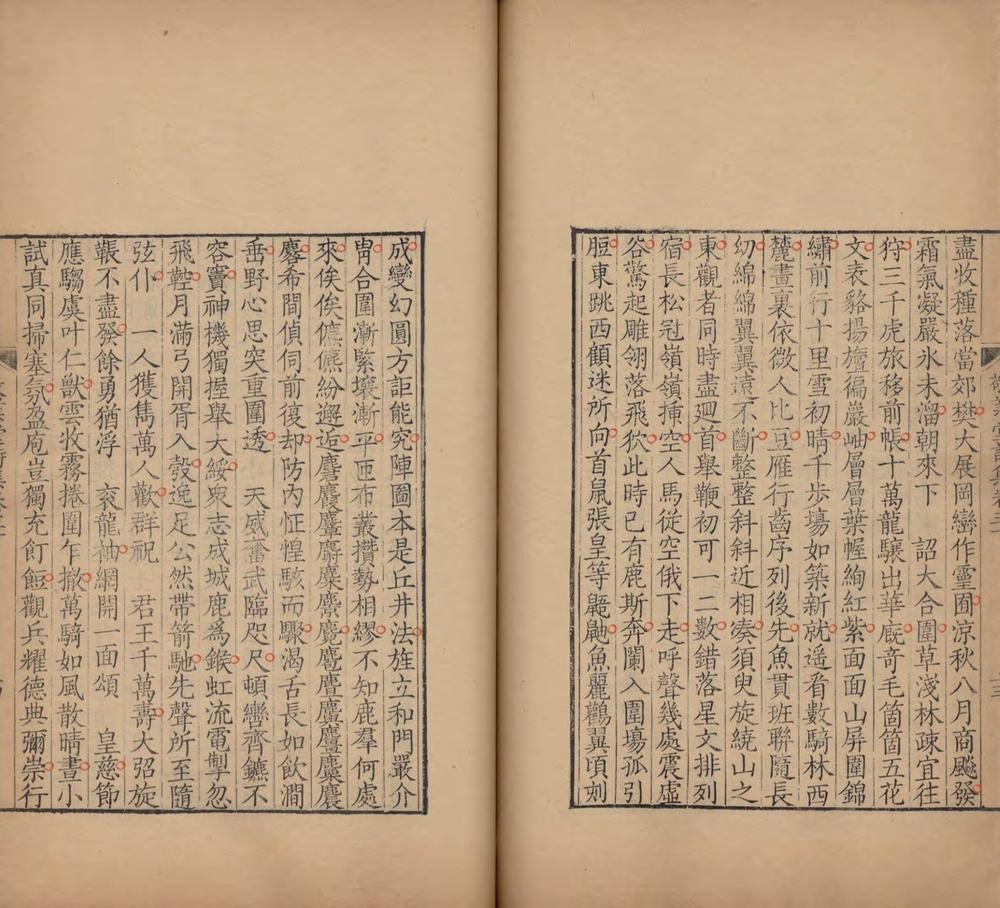 盡收種落當郊樊大展岡巒作靈囿涼秋八月商飈發
霜氣凝嚴氷未溜朝來下　詔大合圍草淺林疎宜往
狩三千虎旅移前帳十萬龍驤出華廐竒毛箇箇五花
文表貉揚旜徧巖岫層層葉幄絢紅紫面面山屏圍錦
繡前行十里雪初晴千步塲如築新就遥看數騎林西
麓畫裏依微人比豆雁行齒序列後先魚貫班聯隨長
幼綿綿翼翼遠不斷整整斜斜近相凑須臾旋繞山之
東觀者同時盡廻首舉鞭初可一二數錯落星文排列
宿長松冠嶺嶺揷空人馬從空俄下走呼聲幾處震虚
谷驚起雕翎落飛狖此時已有鹿斯奔闌入圍塲孤引
脰東跳西顧迷所向首鼠張皇等鼯鼬魚麗鸛翼頃刻
成變幻圓方詎能究陣圖本是丘井法旌立和門嚴介
胄合圍漸緊壤漸平匝布叢攢勢相繆不知鹿羣何處
來俟俟儦儦紛邂逅麏麌麞麝麋麖麂麠麈麌麕麋麌
麛希間偵伺前復却防内怔惶駭而驟渴舌長如飲澗
垂野心思突重圍透　天威奮武臨咫尺頓轡齊鑣不
容竇神機獨握舉大綏衆志成城鹿爲鍭虹流電掣忽
飛鞚月滿弓開胥入彀逸足公然帶箭馳先聲所至隨
弦仆　一人獲雋萬人歡群祝　君王千萬壽大弨旋
韔不盡發餘勇猶浮　衮龍袖網開一面頌　皇慈節
應騶虞叶仁獸雲收霧捲圍乍撤萬騎如風散晴晝小
試真同掃塞氛盈庖豈獨充飣餖觀兵耀德典彌崇行